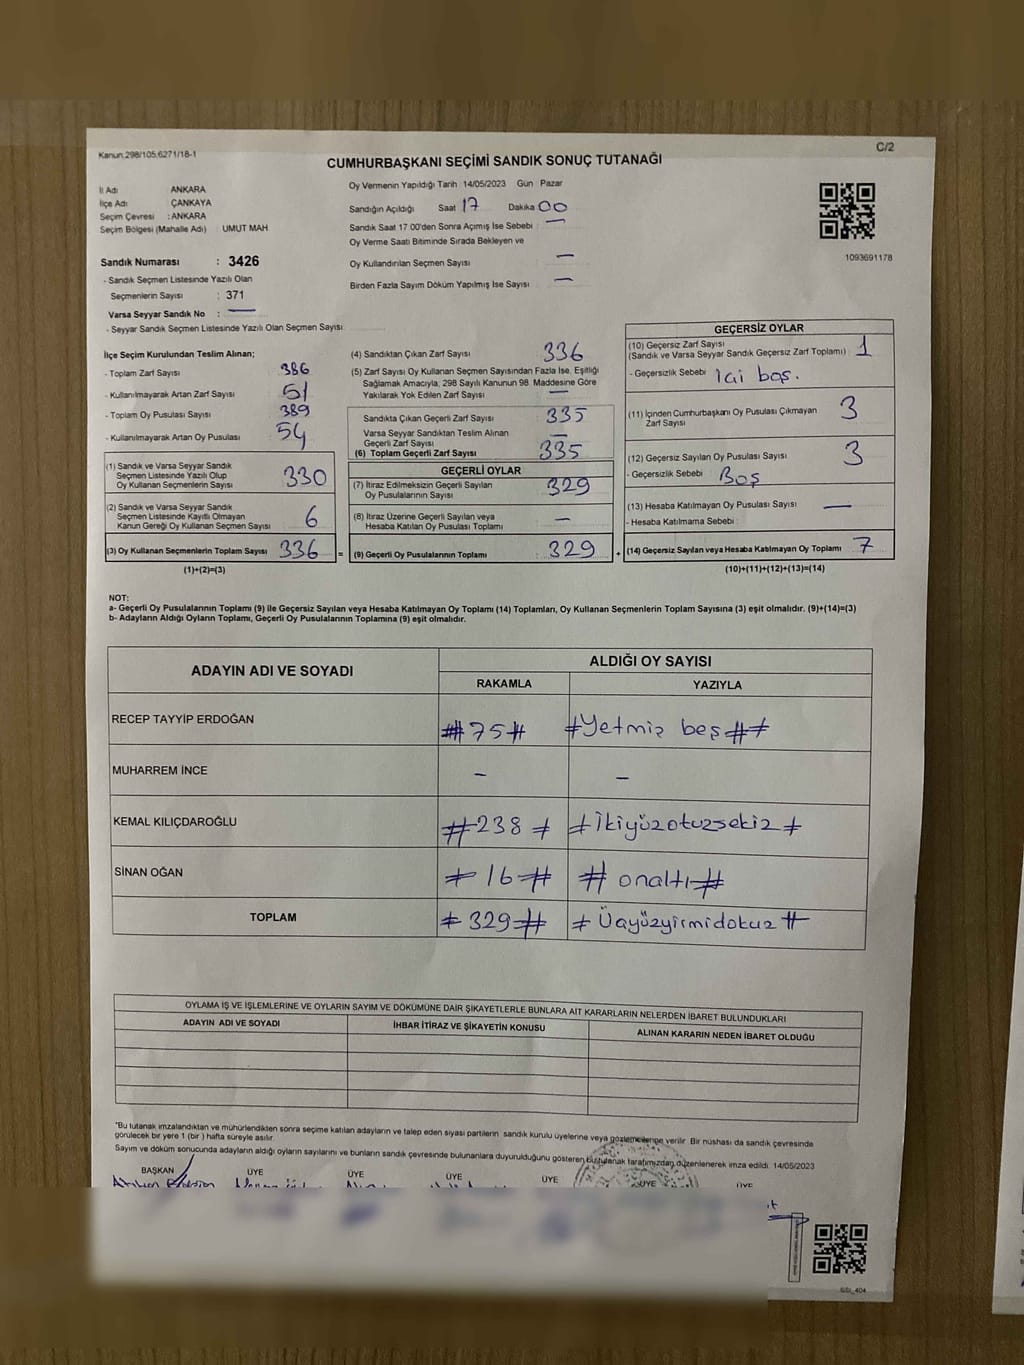 Kanun:298/105,6271/18-1
C/2
CUMHURBAŞKANI SEÇİMİ SANDIK SONUÇ TUTANAĞI
İl Adı ANKARA
İlçe Adı ÇANKAYA
Seçim Çevresi : ANKARA
Seçim Bölgesi (Mahalle Adı) : UMUT MAH
Sandık Numarası : 3426
- Sandık Seçmen Listesinde Yazılı Olan
Seçmenlerin Sayısı : 371
Varsa Seyyar Sandık No : —
- Seyyar Sandık Seçmen Listesinde Yazılı Olan Seçmen Sayısı
Oy Vermenin Yapıldığı Tarih 14/05/2023 Gün Pazar
Sandığın Açıldığı Saat 17 Dakika 00
Sandık Saat 17 00'den Sonra Açımış İse Sebebi —
Oy Verme Saati Bitiminde Sırada Bekleyen ve
Oy Kullandırılan Seçmen Sayısı —
Birden Fazla Sayım Döküm Yapılmış İse Sayısı —
1093691178
İlçe Seçim Kurulundan Teslim Alınan;
- Toplam Zarf Sayısı 386
- Kullanılmayarak Artan Zarf Sayısı 51
- Toplam Oy Pusulası Sayısı 389
- Kullanılmayarak Artan Oy Pusulası 54
(1) Sandık ve Varsa Seyyar Sandık
Seçmen Listesinde Yazılı Olup
Oy Kullanan Seçmenlerin Sayısı 330
(2) Sandık ve Varsa Seyyar Sandık
Seçmen Listesinde Kayıtlı Olmayan
Kanun Gereği Oy Kullanan Seçmen Sayısı 6
(3) Oy Kullanan Seçmenlerin Toplam Sayısı 336 =
(1)+(2)=(3)
(4) Sandıktan Çıkan Zarf Sayısı 336
(5) Zarf Sayısı Oy Kullanan Seçmen Sayısından Fazla İse, Eşitliği
Sağlamak Amacıyla, 298 Sayılı Kanunun 98. Maddesine Göre
Yakılarak Yok Edilen Zarf Sayısı —
Sandıkta Çıkan Geçerli Zarf Sayısı 335
Varsa Seyyar Sandıktan Teslim Alınan
Geçerli Zarf Sayısı —
(6) Toplam Geçerli Zarf Sayısı 335
GEÇERLİ OYLAR
(7) İtiraz Edilmeksizin Geçerli Sayılan
Oy Pusulalarının Sayısı 329
(8) İtiraz Üzerine Geçerli Sayılan veya
Hesaba Katılan Oy Pusulası Toplamı —
(9) Geçerli Oy Pusulalarının Toplamı 329 +
GEÇERSİZ OYLAR
(10) Geçersiz Zarf Sayısı
(Sandık ve Varsa Seyyar Sandık Geçersiz Zarf Toplamı) 1
- Geçersizlik Sebebi İçi boş.
(11) İçinden Cumhurbaşkanı Oy Pusulası Çıkmayan
Zarf Sayısı 3
(12) Geçersiz Sayılan Oy Pusulası Sayısı 3
- Geçersizlik Sebebi Boş
(13) Hesaba Katılmayan Oy Pusulası Sayısı —
- Hesaba Katılmama Sebebi
(14) Geçersiz Sayılan veya Hesaba Katılmayan Oy Toplamı 7
(10)+(11)+(12)+(13)=(14)
NOT:
a- Geçerli Oy Pusulalarının Toplamı (9) ile Geçersiz Sayılan veya Hesaba Katılmayan Oy Toplamı (14) Toplamları, Oy Kullanan Seçmenlerin Toplam Sayısına (3) eşit olmalıdır. (9)+(14)=(3)
b- Adayların Aldığı Oyların Toplamı, Geçerli Oy Pusulalarının Toplamına (9) eşit olmalıdır.
ADAYIN ADI VE SOYADI ALDIĞI OY SAYISI
RAKAMLA YAZIYLA
RECEP TAYYİP ERDOĞAN ##75# #Yetmiş beş##
MUHARREM İNCE - -
KEMAL KILIÇDAROĞLU #238# #İkiyüzotuzsekiz#
SİNAN OĞAN #16# #onaltı#
TOPLAM #329# #Üçyüzyirmidokuz#
OYLAMA İŞ VE İŞLEMLERİNE VE OYLARIN SAYIM VE DÖKÜMÜNE DAİR ŞİKAYETLERLE BUNLARA AİT KARARLARIN NELERDEN İBARET BULUNDUKLARI
ADAYIN ADI VE SOYADI İHBAR İTİRAZ VE ŞİKAYETİN KONUSU ALINAN KARARIN NEDEN İBARET OLDUĞU
*Bu tutanak imzalandıktan ve mühürlendikten sonra seçime katılan adayların ve talep eden siyasi partilerin sandık kurulu üyelerine veya gözlemcilerine verilir. Bir nüshası da sandık çevresinde
görülecek bir yere 1 (bir) hafta süreyle asılır.
Sayım ve döküm sonucunda adayların aldığı oyların sayılarını ve bunların sandık çevresinde bulunanlara duyurulduğunu gösteren bu tutanak tarafımızdan düzenlenerek imza edildi. 14/05/2023
BAŞKAN ÜYE ÜYE ÜYE ÜYE ÜYE ÜYE